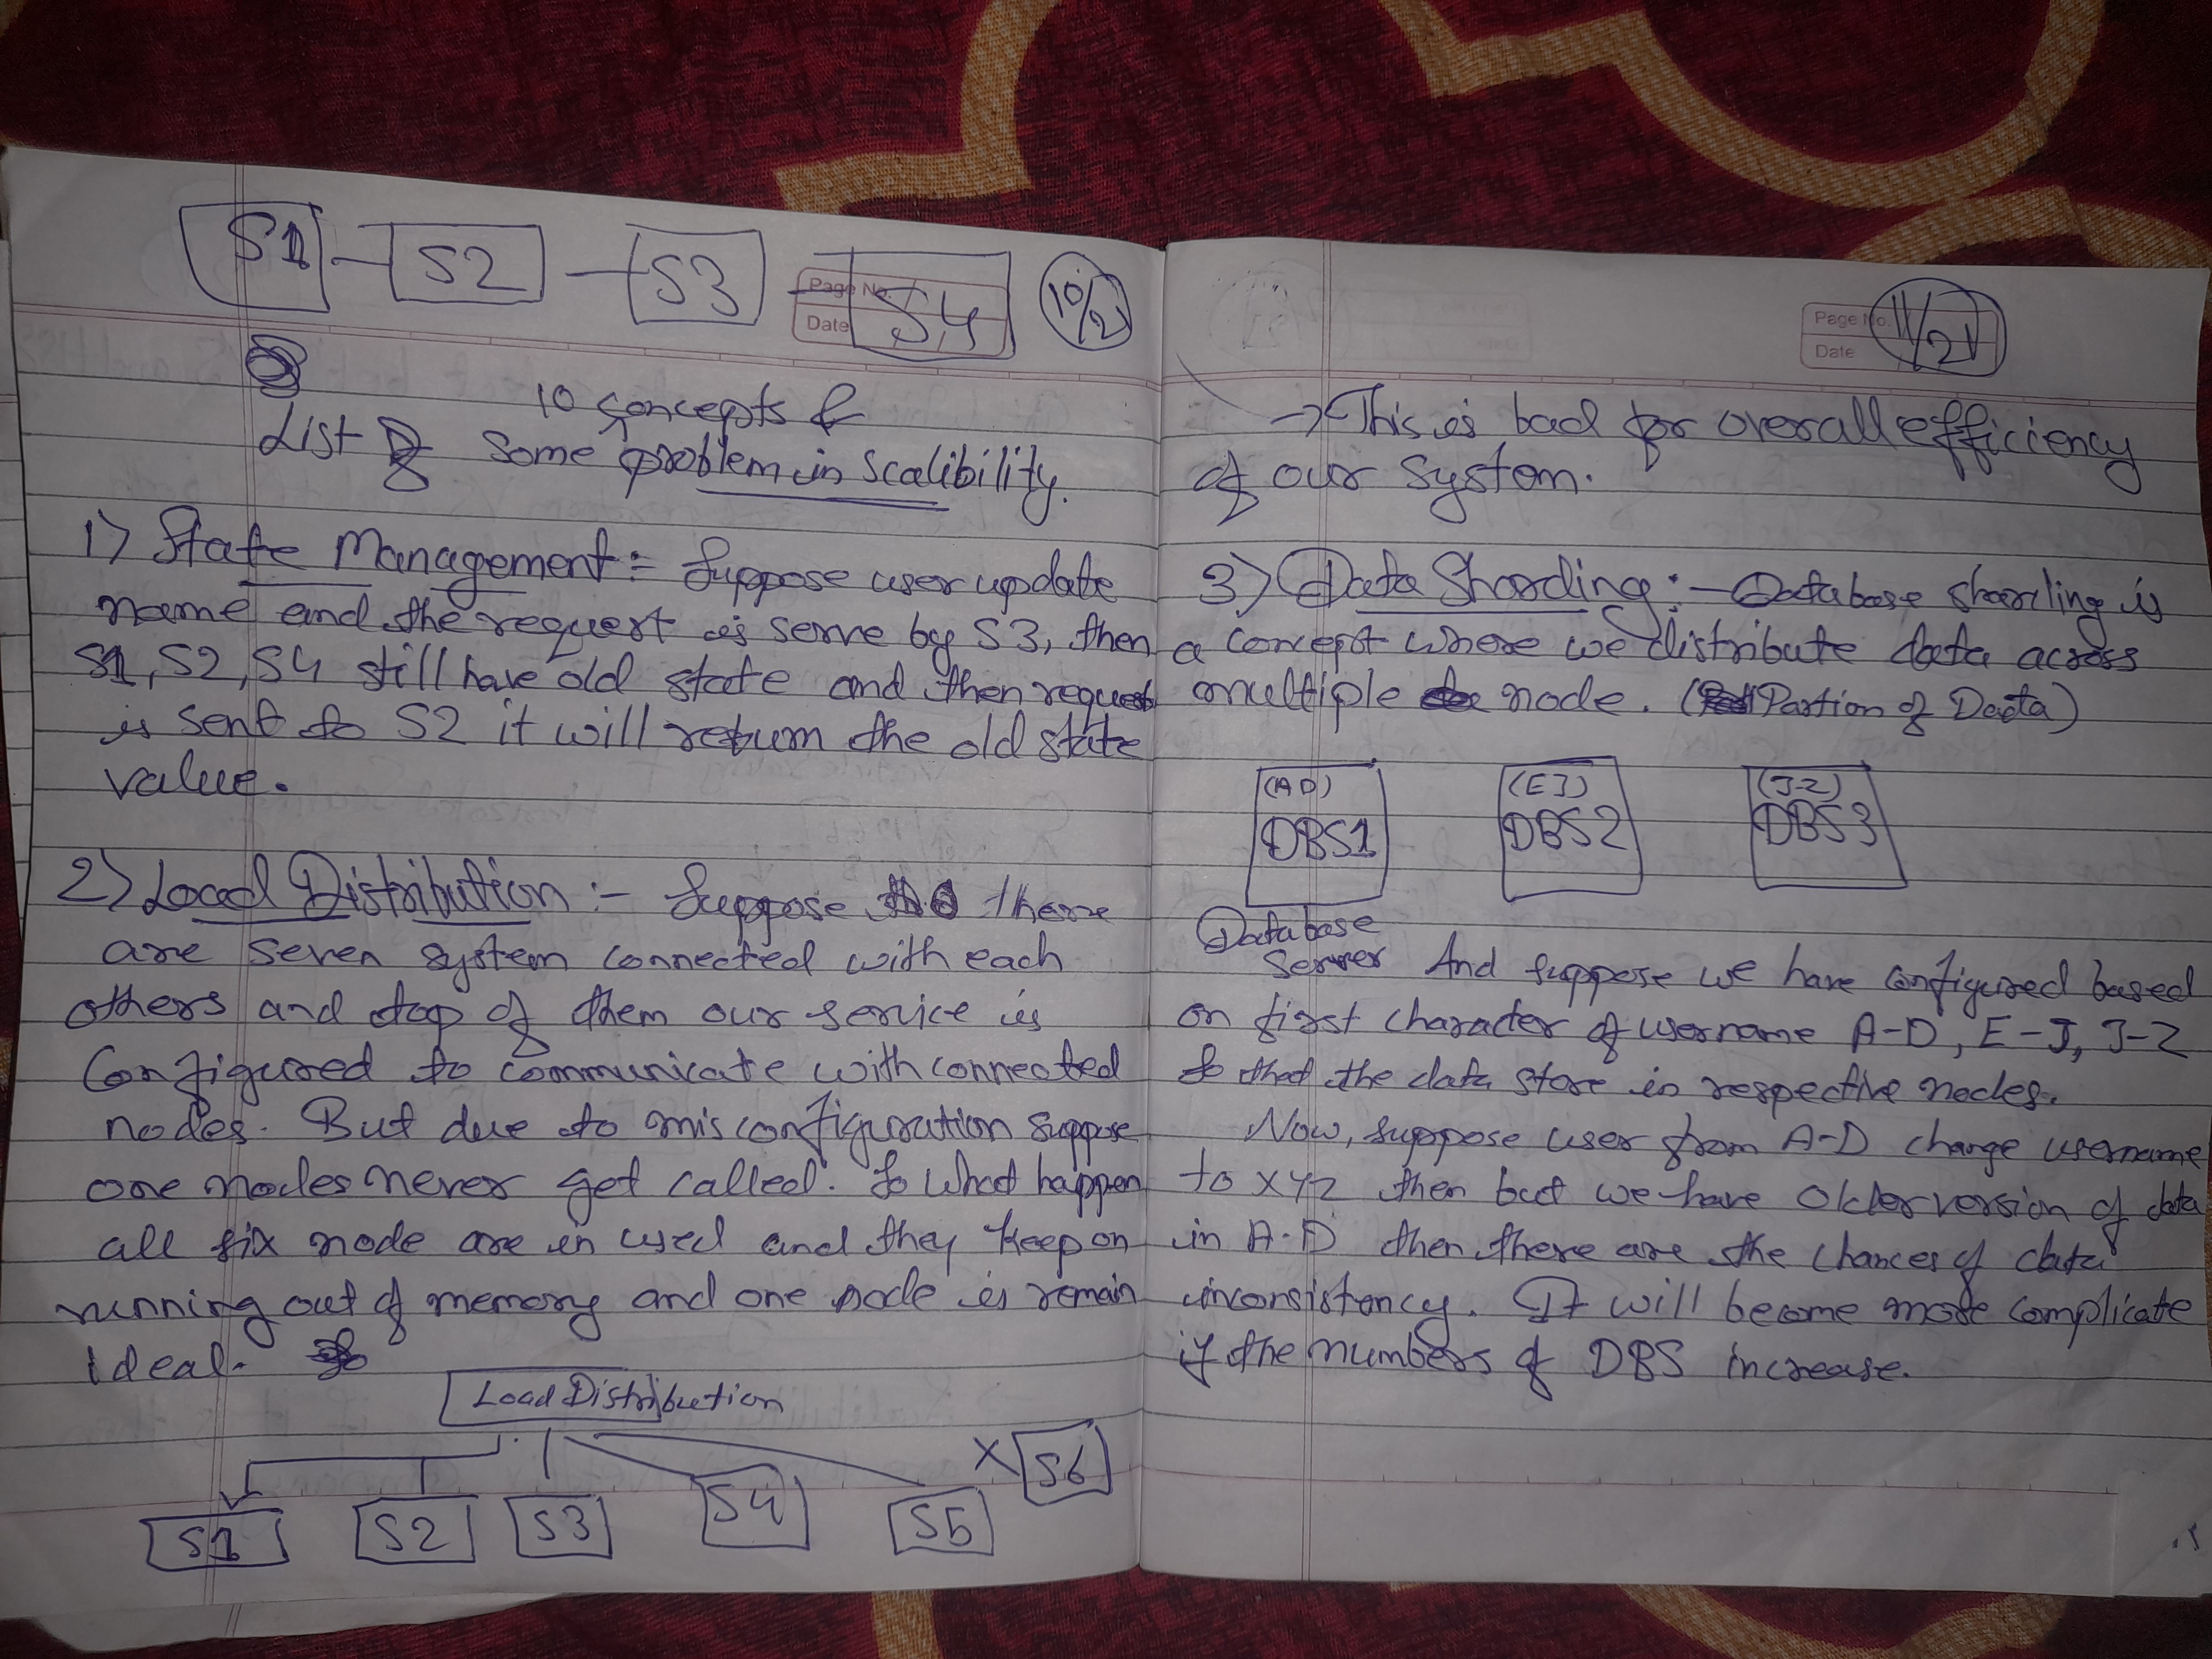 S1 S2 S3 S4
Page No.
Date
10/21
10 concepts &
List of some problem in scalibility.
1) State Management :- Suppose user update
name and the request is serve by S3, then
S1, S2, S4 still have old state and then request
is sent to S2 it will return the old state
value.
2) Load Distribution :- Suppose there
are seven system connected with each
others and top of them our service is
Configured to communicate with connected
nodes. But due to misconfiguration suppose
one nodes never got called. So what happen
all six node are in used and they keep on
running out of memory and one node is remain
ideal.
Load Distribution
S1 S2 S3 S4 S5 X S6
Page No.
Date
11/21
→ This is bad for overall efficiency
of our system.
3) Data Sharding :- Database sharding is
a concept where we distribute data across
multiple node. (Partion of Data)
(AD) (EJ) (J-Z)
DBS1 DBS2 DBS3
Database
Server And suppose we have configured based
on first character of username A-D, E-J, J-Z
so that the data store in respective nodes.
Now, suppose user from A-D change username
to XYZ then but we have older version of data
in A-D then there are the chances of data
inconsistancy. It will become more complicate
if the numbers of DBS increase.